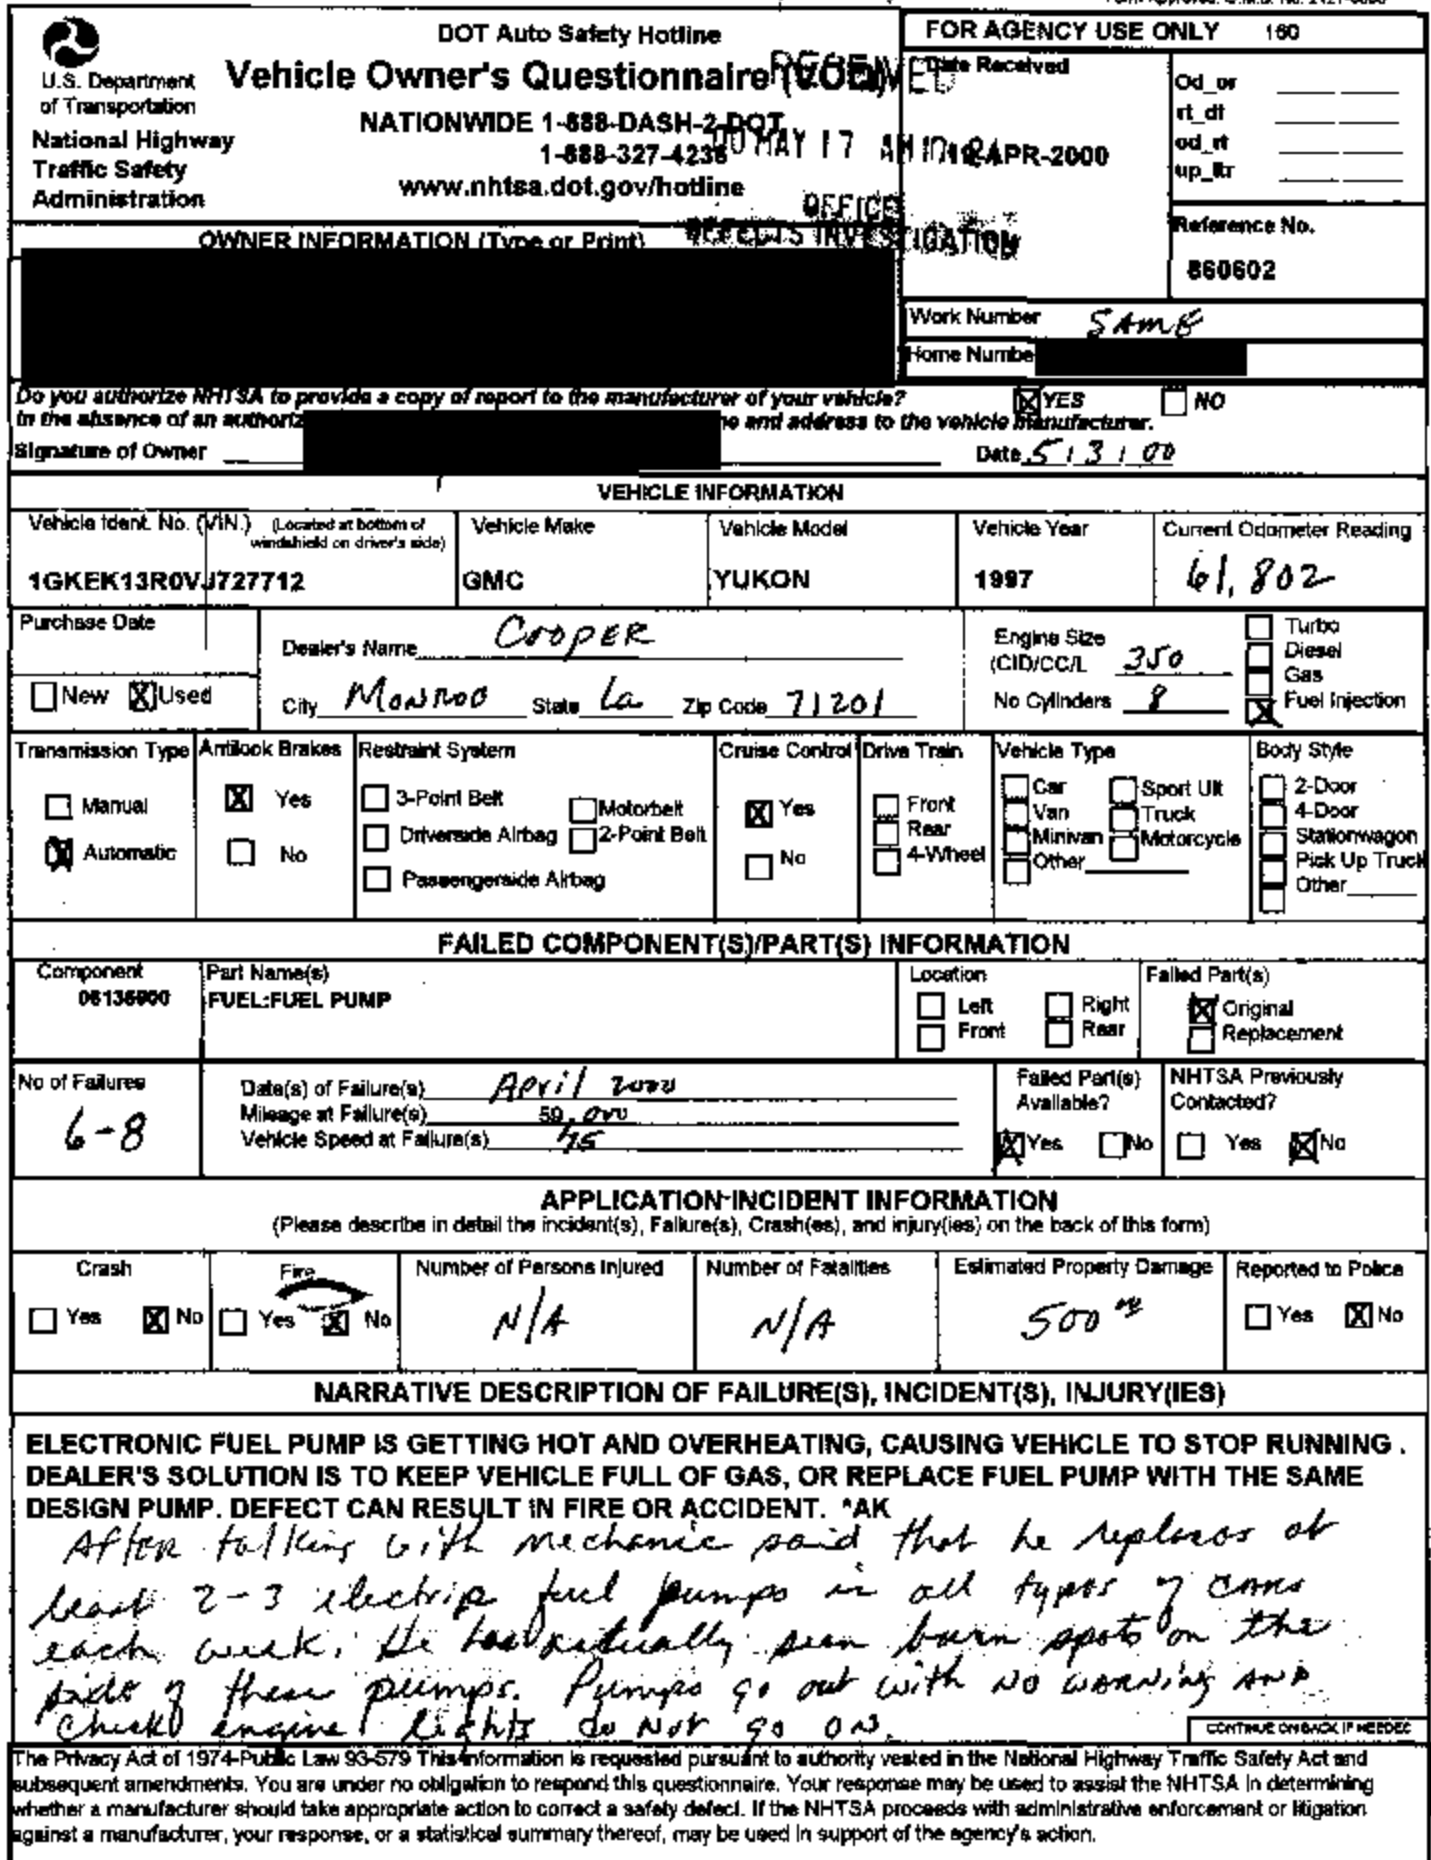 DOT Auto Safety Hotline
Vehicle Owner's Questionnaire (VOQ)
NATIONWIDE 1-888-DASH-2-DOT
1-888-327-4236
www.nhtsa.dot.gov/hotline
U.S. Department
of Transportation
National Highway
Traffic Safety
Administration
RECEIVED
MAY 17 AM
OFFICE
DEFECTS INVESTIGATION
FOR AGENCY USE ONLY 160
Date Received
APR-2000
Od_or
rt_dt
od_rt
up_ltr
Reference No.
860602
OWNER INFORMATION (Type or Print)
Work Number SAME
Home Numbe
Do you authorize NHTSA to provide a copy of report to the manufacturer of your vehicle? YES NO
In the absence of an authoriz and address to the vehicle manufacturer.
Signature of Owner Date 5/3/00
VEHICLE INFORMATION
Vehicle Ident. No. (VIN.) (Located at bottom of windshield on driver's side)
1GKEK13R0VJ727712
Vehicle Make
GMC
Vehicle Model
YUKON
Vehicle Year
1997
Current Odometer Reading
61,802
Purchase Date
New Used
Dealer's Name COOPER
City MONROE State La Zip Code 71201
Engine Size
(CID/CC/L 350
No Cylinders 8
Turbo
Diesel
Gas
Fuel Injection
Transmission Type
Manual
Automatic
Antilock Brakes
Yes
No
Restraint System
3-Point Belt
Motorbelt
Driverside Airbag
2-Point Belt
Passengerside Airbag
Cruise Control
Yes
No
Drive Train
Front
Rear
4-Wheel
Vehicle Type
Car
Van
Minivan
Other
Sport Ult
Truck
Motorcycle
Body Style
2-Door
4-Door
Stationwagon
Pick Up Truck
Other
FAILED COMPONENT(S)/PART(S) INFORMATION
Component
Part Name(s)
FUEL:FUEL PUMP
Location
Left Right
Front Rear
Failed Part(s)
Original
Replacement
No of Failures
6-8
Date(s) of Failure(s) April 2000
Mileage at Failure(s) 59,000
Vehicle Speed at Failure(s) 75
Failed Part(s)
Available?
Yes No
NHTSA Previously
Contacted?
Yes No
APPLICATION INCIDENT INFORMATION
(Please describe in detail the incident(s), Failure(s), Crash(es), and injury(ies) on the back of this form)
Crash
Yes No
Fire
Yes No
Number of Persons Injured
N/A
Number of Fatalities
N/A
Estimated Property Damage
500
Reported to Police
Yes No
NARRATIVE DESCRIPTION OF FAILURE(S), INCIDENT(S), INJURY(IES)
ELECTRONIC FUEL PUMP IS GETTING HOT AND OVERHEATING, CAUSING VEHICLE TO STOP RUNNING .
DEALER'S SOLUTION IS TO KEEP VEHICLE FULL OF GAS, OR REPLACE FUEL PUMP WITH THE SAME
DESIGN PUMP. DEFECT CAN RESULT IN FIRE OR ACCIDENT. *AK
After talking with mechanic said that he replaces at
least 2-3 electric fuel pumps in all types of cars
each week. He has actually seen burn spots on the
side of these pumps. Pumps go out with NO warning AND
Check engine lights do Not go ON.
CONTINUE ON BACK IF NEEDED
The Privacy Act of 1974-Public Law 93-579 This information is requested pursuant to authority vested in the National Highway Traffic Safety Act and
subsequent amendments. You are under no obligation to respond this questionnaire. Your response may be used to assist the NHTSA in determining
whether a manufacturer should take appropriate action to correct a safety defect. If the NHTSA proceeds with administrative enforcement or litigation
against a manufacturer, your response, or a statistical summary thereof, may be used in support of the agency's action.